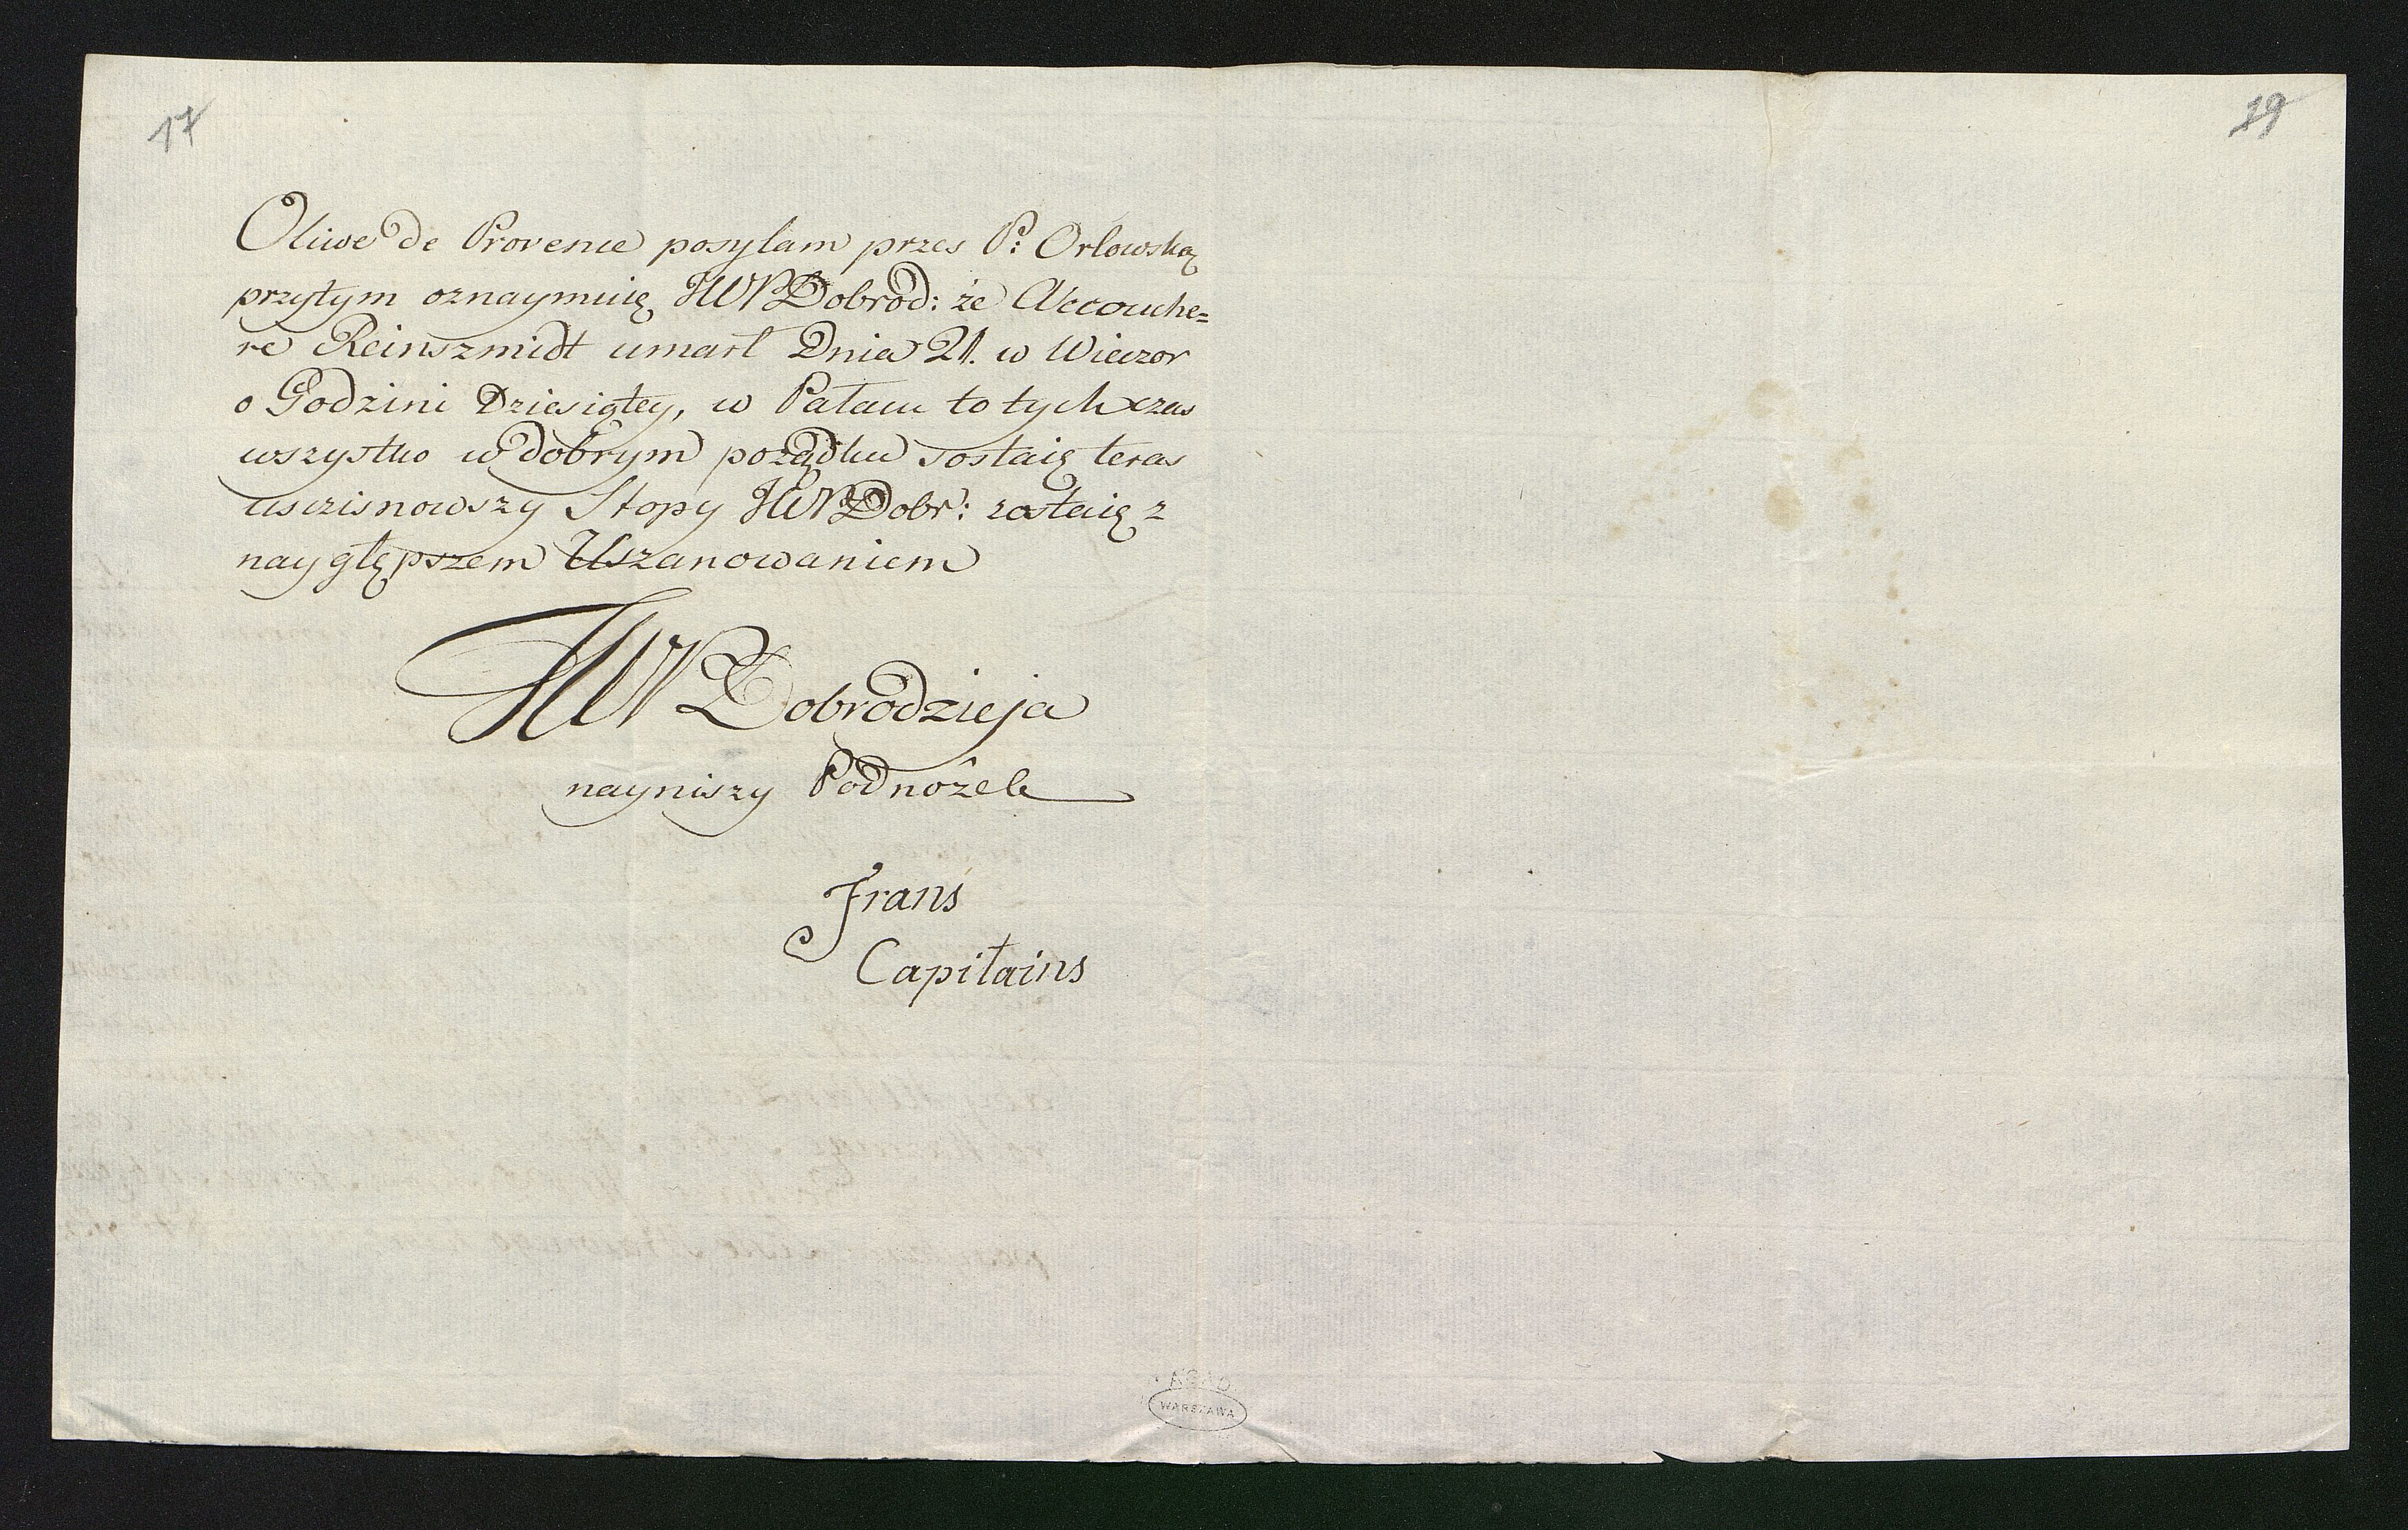 17
19
Oliwe de Provence posylam przes P: Orlowską
przytym oznaymuię JWPDobrod: że Accouche=
re Reinszmidt umarł Dnia 21. w Wieczor
o Godzini Dziesiątey, w Pałacu to tych czas
wszystko w dobrym pożądku sostaię teras
usczisnowszy Stopy JWPDobr: zostaię z
naygłępszem Uszanowaniem
JWPDobrodzieja
nayniszy Podnôżek
Frans
Capitains
AGAD
WARSZAWA